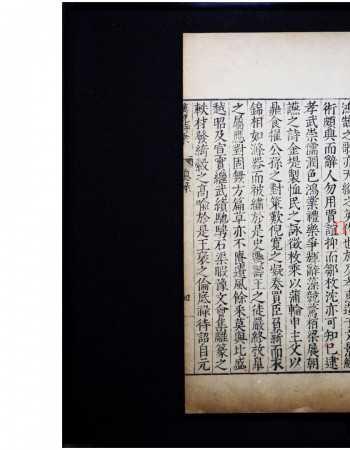 鴻鵠之歌亦天縱之
術頗興而辭人勿用賈誼抑而鄒枚沈亦可知已逮
孝武崇儒潤色鴻業禮樂爭輝辭藻競騖柏梁展朝
讌之詩金堤製恤民之詠徵枚乘以蒲輪申主父以
鼎食擢公孫之對策歎倪寬之擬奏買臣負薪而衣
錦相如滌器而被繡於是史遷壽王之徒嚴終枚皐
之屬應對固無方篇章亦不匱遺風餘采莫與比盛
越昭及宣實繼武績馳騁石渠暇豫文會集雕篆之
軼材發綺縠之高喻於是王褒之倫底祿待詔自元